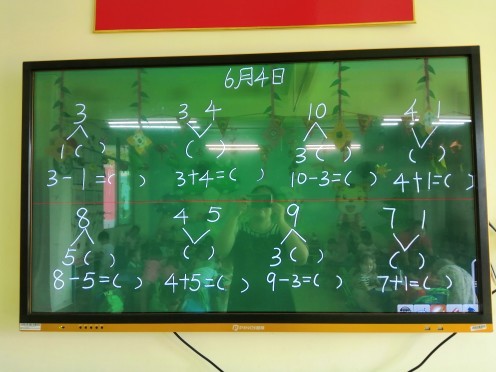 6月4日
3 3 4 10 4 1
1( ) ( ) 3( ) ( )
3-1=( ) 3+4=( ) 10-3=( ) 4+1=( )
8 4 5 9 7 1
5( ) ( ) 3( ) ( )
8-5=( ) 4+5=( ) 9-3=( ) 7+1=( )